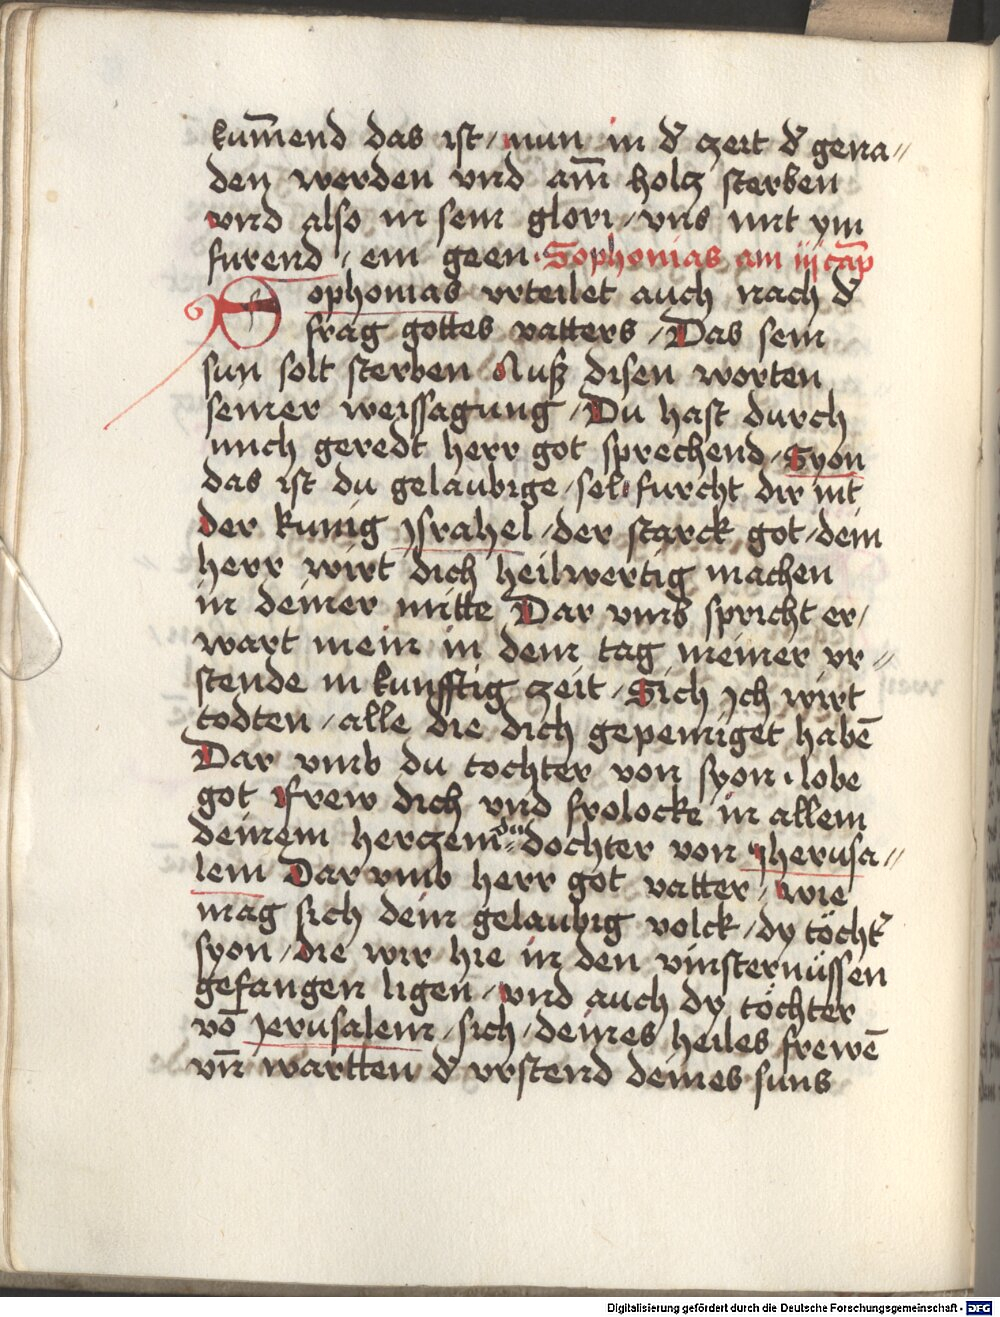 kum̄end das ist / nun in d᷑ czeit d᷑ gena〃
den werden vnd am̄ holcz sterben
vnd also in sein glori / vns mit ym
furend / ein geen · Sophonias am iij cap̄
Sophonias vrteilet auch nach d᷑
frag gottes vatters / Das sein
sun solt sterben Auß disen worten
seiner weissagung / Du hast durch
mich geredt herr got sprechend / Syon
das ist du gelaubige / sel furcht dir nit
der kunig ysrahel / der starck got / dein
herr wirt dich heilwertig machen
in deiner mitte Dar vmb spricht er /
wart mein in dem tag meiner vr〃
stende in kunfftig czeit / Sich ych wirt
todten / alle die dich gepeiniget habē
Dar vmb du tochter von syon · lobe
got frew dich vnd frolocke in allem
deinem herczem̄ dochter von yherusa〃
lem Dar vmb herr got vatter / wie
mag sich dein gelaubig volck / dy töcht᷑
syon / die wir hie in den vinsternüssen
gefangen ligen / vnd auch dy töchter
vō yerusalem / sich / deines heiles frewē
vn̄ wartten d᷑ vrstend deines suns
Digitalisierung gefördert durch die Deutsche Forschungsgemeinschaft - DFG